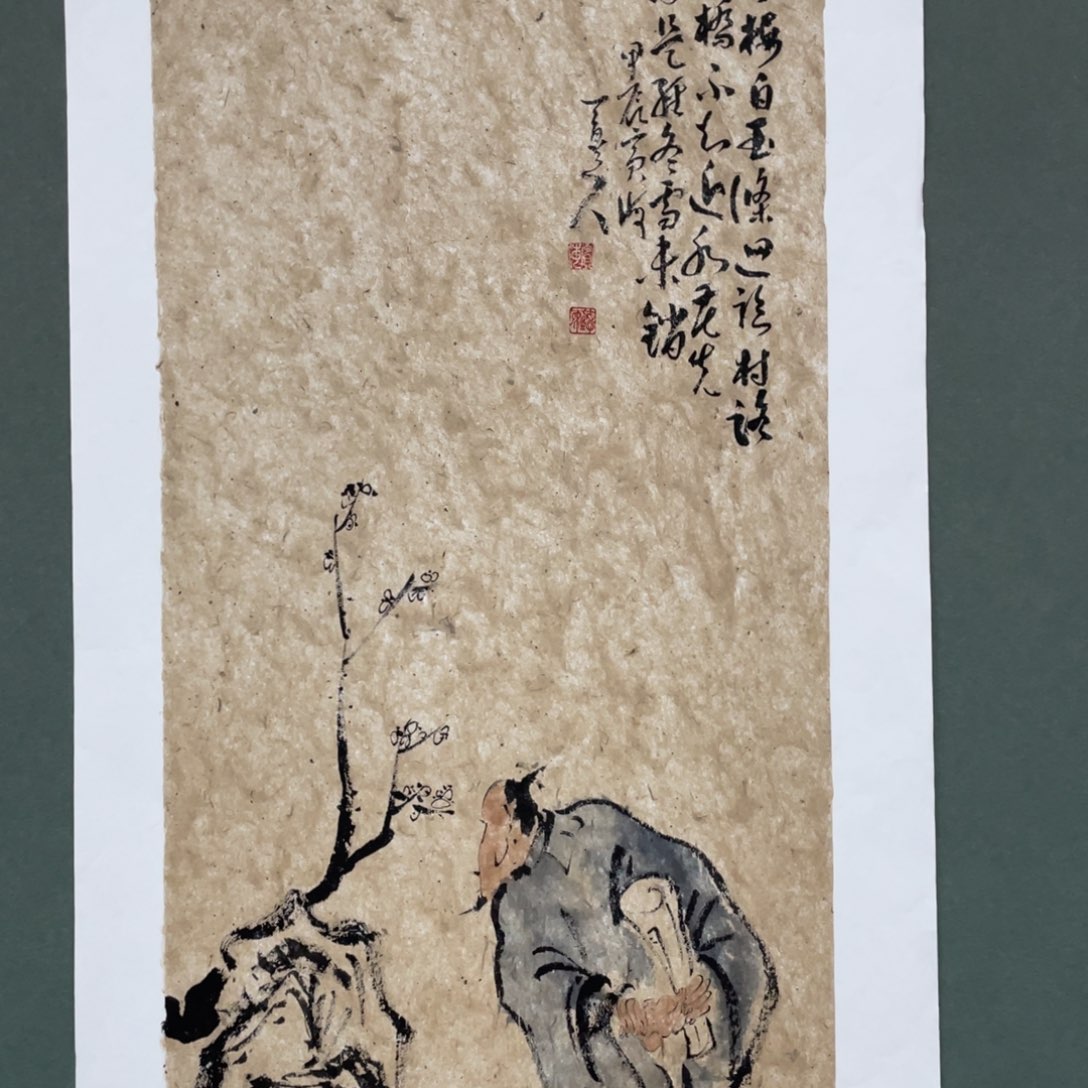 梅白玉條迥臨村路
橋不知近水花先
是經冬雪未銷
甲辰
人